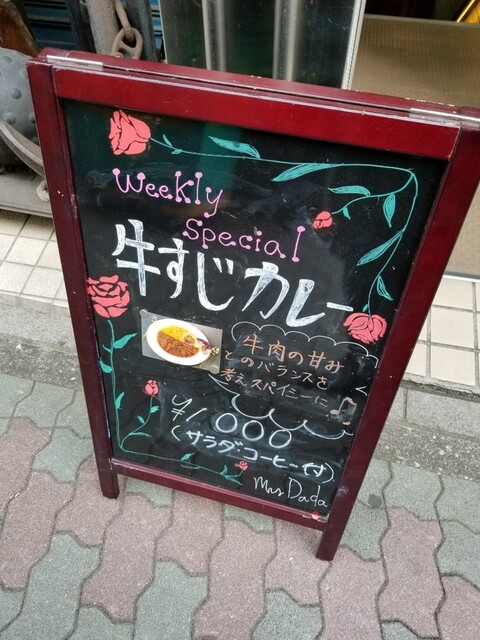 Weekly
Special
牛すじカレー
牛肉の甘み
とのバランスを
考えスパイシーに♫
¥1,000
(サラダ・コーヒー付)
Mrs Dada